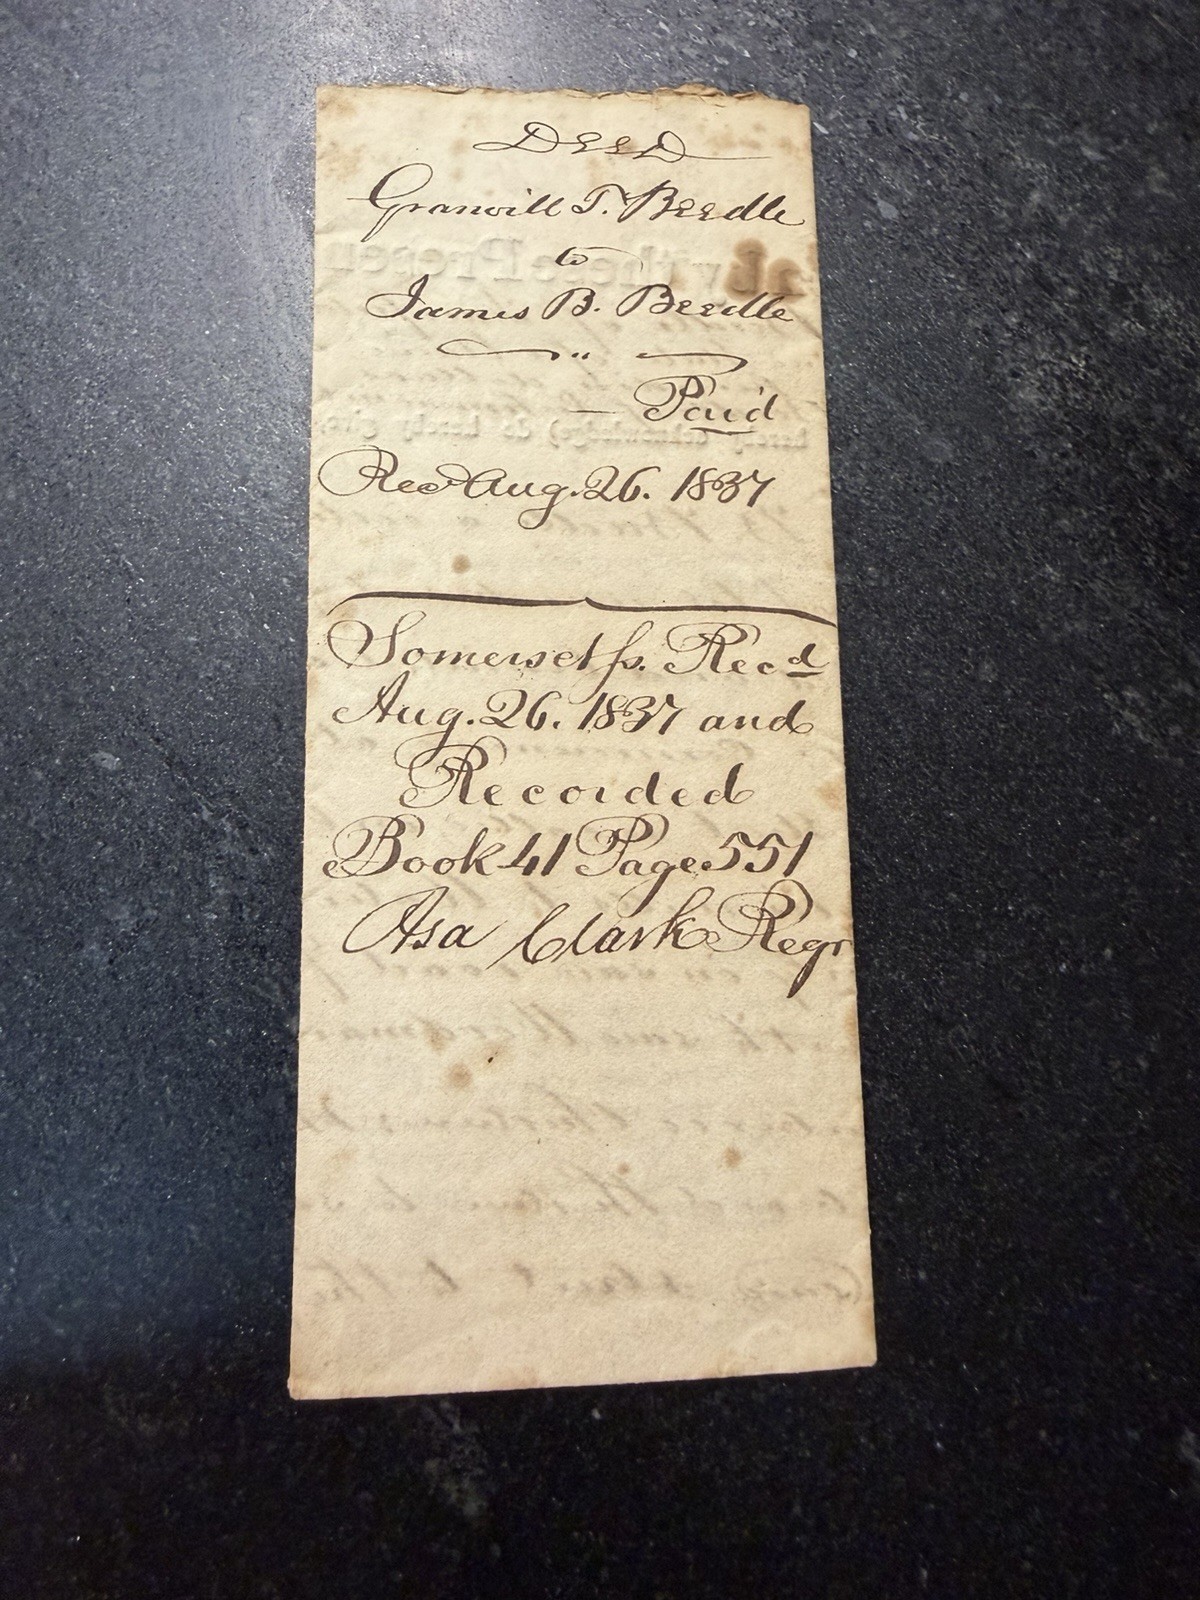 DEED
Granvill T. Beedle
to
James B. Beedle
Paid
Recd Aug. 26. 1837
Somerset ss. Recd
Aug. 26. 1837 and
Recorded
Book 41 Page 551
Asa Clark Regr